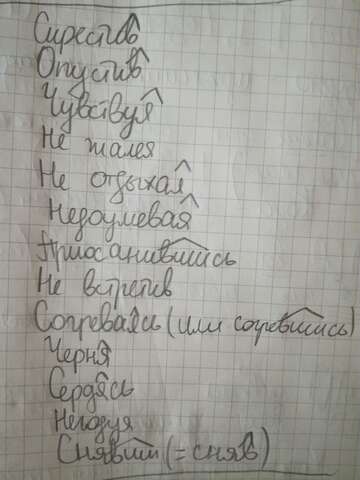 Скрестив
Опустив
Чувствуя
Не жалея
Не отдыхая
Недоумевая
Приосанившись
Не встретив
Согреваясь (или согревшись)
Черня
Сердясь
Негодуя
Снявши (= сняв)